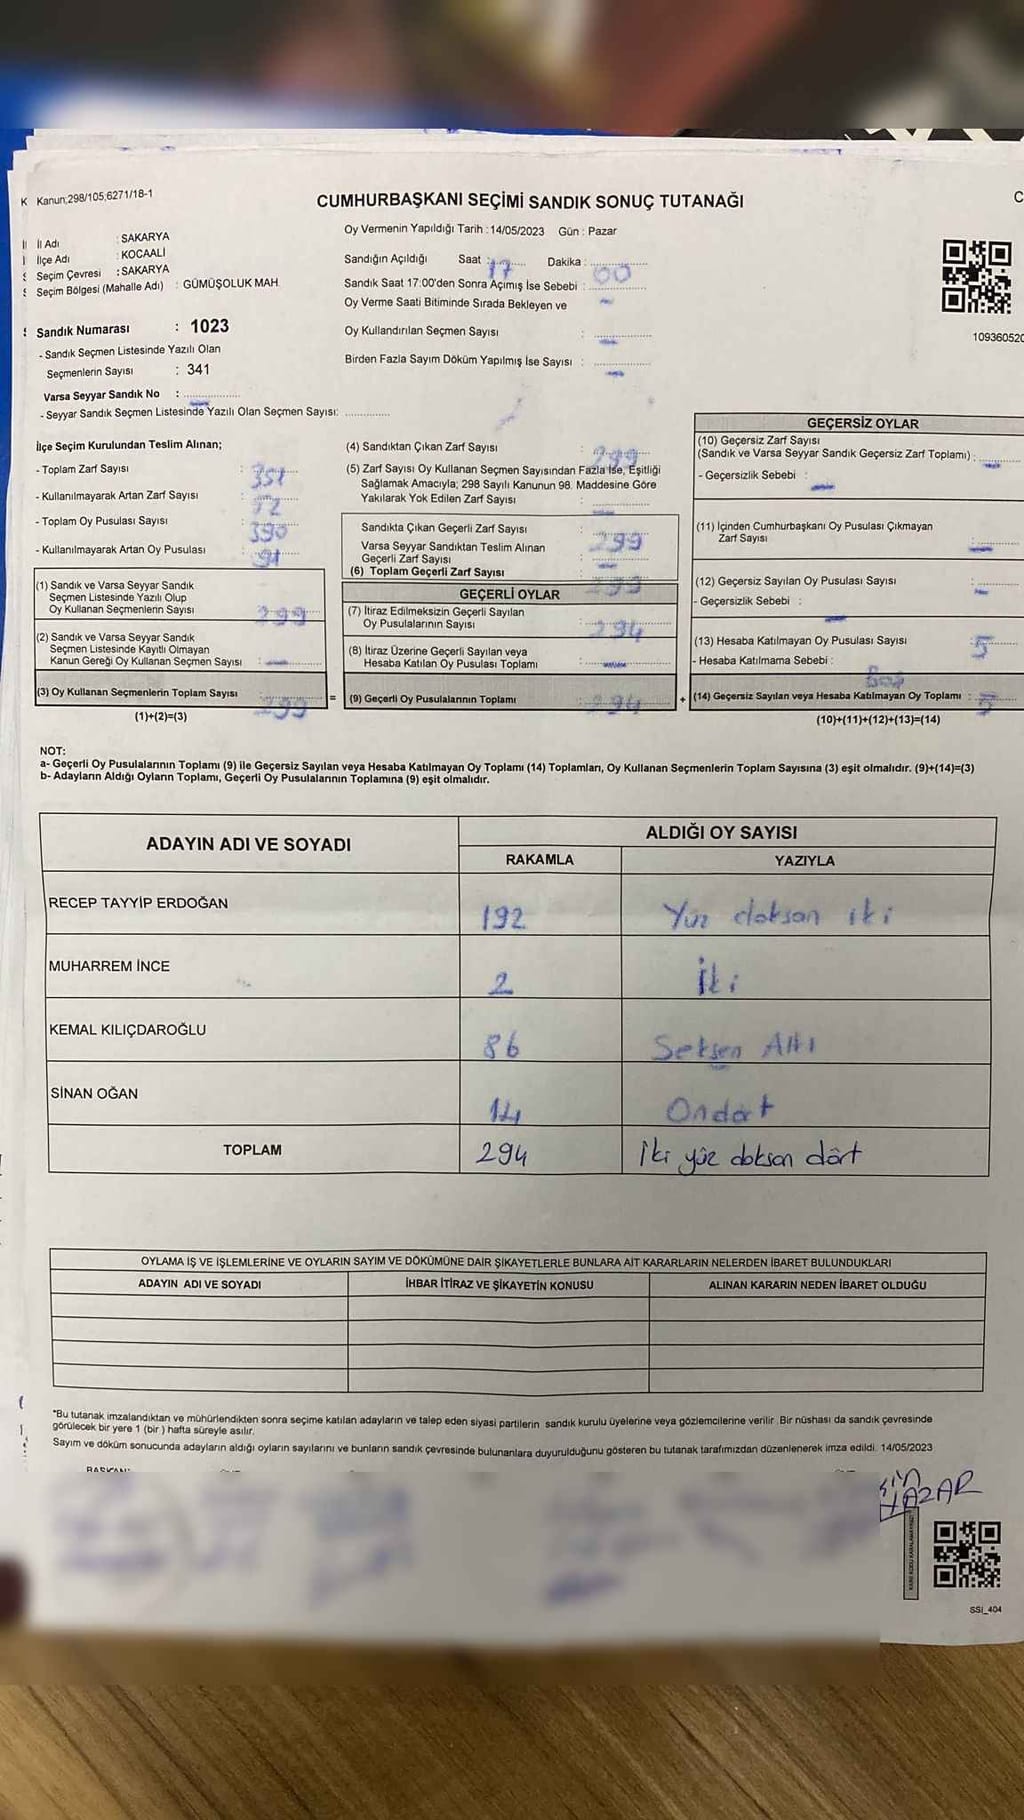 K Kanun;298/105;6271/18-1
CUMHURBAŞKANI SEÇİMİ SANDIK SONUÇ TUTANAĞI
İl Adı : SAKARYA
İlçe Adı : KOCAALİ
Seçim Çevresi : SAKARYA
Seçim Bölgesi (Mahalle Adı) : GÜMÜŞOLUK MAH
Sandık Numarası : 1023
- Sandık Seçmen Listesinde Yazılı Olan
Seçmenlerin Sayısı : 341
Varsa Seyyar Sandık No :
- Seyyar Sandık Seçmen Listesinde Yazılı Olan Seçmen Sayısı:
Oy Vermenin Yapıldığı Tarih : 14/05/2023 Gün : Pazar
Sandığın Açıldığı Saat : 17 Dakika : 00
Sandık Saat 17:00'den Sonra Açımış İse Sebebi : -
Oy Verme Saati Bitiminde Sırada Bekleyen ve
Oy Kullandırılan Seçmen Sayısı : -
Birden Fazla Sayım Döküm Yapılmış İse Sayısı : -
109360520
İlçe Seçim Kurulundan Teslim Alınan;
- Toplam Zarf Sayısı : 351
- Kullanılmayarak Artan Zarf Sayısı : 52
- Toplam Oy Pusulası Sayısı : 390
- Kullanılmayarak Artan Oy Pusulası : 91
(1) Sandık ve Varsa Seyyar Sandık
Seçmen Listesinde Yazılı Olup
Oy Kullanan Seçmenlerin Sayısı : 299
(2) Sandık ve Varsa Seyyar Sandık
Seçmen Listesinde Kayıtlı Olmayan
Kanun Gereği Oy Kullanan Seçmen Sayısı : -
(3) Oy Kullanan Seçmenlerin Toplam Sayısı : 299
(1)+(2)=(3)
(4) Sandıktan Çıkan Zarf Sayısı : 299
(5) Zarf Sayısı Oy Kullanan Seçmen Sayısından Fazla İse, Eşitliği
Sağlamak Amacıyla; 298 Sayılı Kanunun 98. Maddesine Göre
Yakılarak Yok Edilen Zarf Sayısı : -
Sandıkta Çıkan Geçerli Zarf Sayısı : 299
Varsa Seyyar Sandıktan Teslim Alınan
Geçerli Zarf Sayısı : -
(6) Toplam Geçerli Zarf Sayısı : 299
GEÇERLİ OYLAR
(7) İtiraz Edilmeksizin Geçerli Sayılan
Oy Pusulalarının Sayısı : 294
(8) İtiraz Üzerine Geçerli Sayılan veya
Hesaba Katılan Oy Pusulası Toplamı : -
= (9) Geçerli Oy Pusulalarının Toplamı : 294
GEÇERSİZ OYLAR
(10) Geçersiz Zarf Sayısı
(Sandık ve Varsa Seyyar Sandık Geçersiz Zarf Toplamı) : -
- Geçersizlik Sebebi : -
(11) İçinden Cumhurbaşkanı Oy Pusulası Çıkmayan
Zarf Sayısı : -
(12) Geçersiz Sayılan Oy Pusulası Sayısı : -
- Geçersizlik Sebebi : -
(13) Hesaba Katılmayan Oy Pusulası Sayısı : 5
- Hesaba Katılmama Sebebi : Boş
+ (14) Geçersiz Sayılan veya Hesaba Katılmayan Oy Toplamı : 5
(10)+(11)+(12)+(13)=(14)
NOT:
a- Geçerli Oy Pusulalarının Toplamı (9) ile Geçersiz Sayılan veya Hesaba Katılmayan Oy Toplamı (14) Toplamları, Oy Kullanan Seçmenlerin Toplam Sayısına (3) eşit olmalıdır. (9)+(14)=(3)
b- Adayların Aldığı Oyların Toplamı, Geçerli Oy Pusulalarının Toplamına (9) eşit olmalıdır.
ADAYIN ADI VE SOYADI ALDIĞI OY SAYISI
RAKAMLA YAZIYLA
RECEP TAYYİP ERDOĞAN 192 Yüz doksan iki
MUHARREM İNCE 2 İki
KEMAL KILIÇDAROĞLU 86 Seksen Altı
SİNAN OĞAN 14 Ondört
TOPLAM 294 İki yüz doksan dört
OYLAMA İŞ VE İŞLEMLERİNE VE OYLARIN SAYIM VE DÖKÜMÜNE DAİR ŞİKAYETLERLE BUNLARA AİT KARARLARIN NELERDEN İBARET BULUNDUKLARI
ADAYIN ADI VE SOYADI İHBAR İTİRAZ VE ŞİKAYETİN KONUSU ALINAN KARARIN NEDEN İBARET OLDUĞU
*Bu tutanak imzalandıktan ve mühürlendikten sonra seçime katılan adayların ve talep eden siyasi partilerin sandık kurulu üyelerine veya gözlemcilerine verilir .Bir nüshası da sandık çevresinde
görülecek bir yere 1 (bir ) hafta süreyle asılır.
Sayım ve döküm sonucunda adayların aldığı oyların sayılarını ve bunların sandık çevresinde bulunanlara duyurulduğunu gösteren bu tutanak tarafımızdan düzenlenerek imza edildi. 14/05/2023
SSİ_404